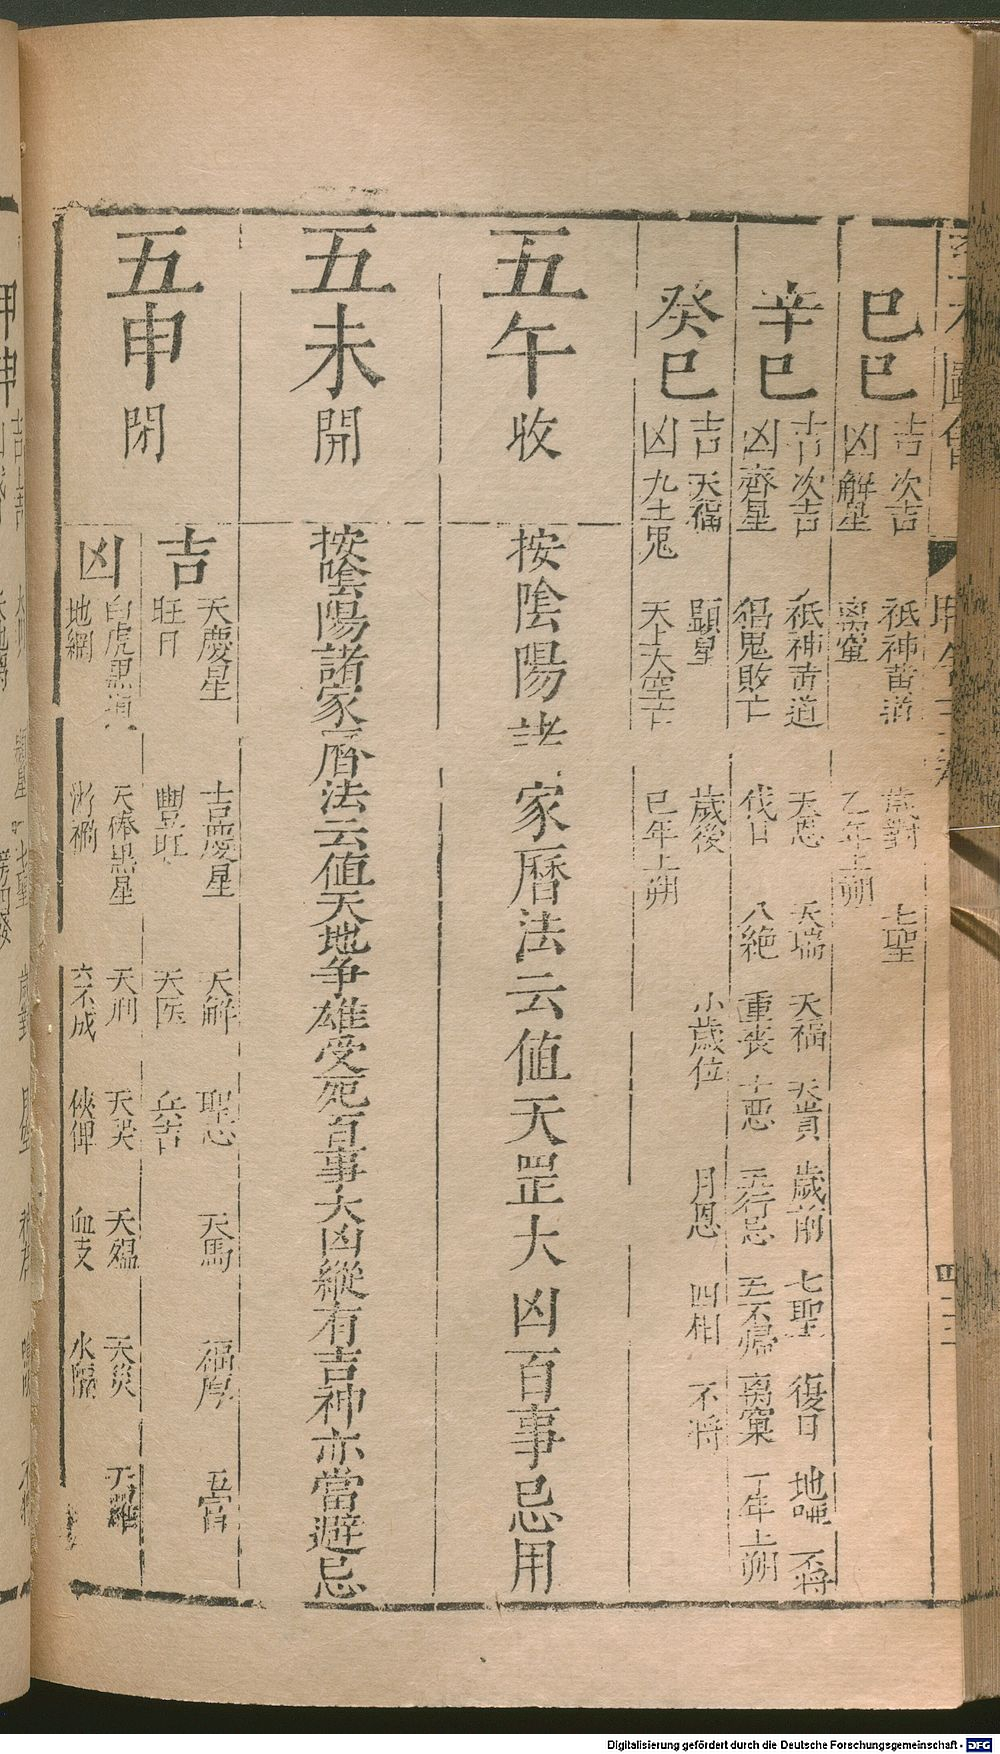 巳巳
吉 次吉 祇神黃道 歲對 七聖
凶 解星 离窠 乙年上朔
辛巳
吉 次吉 祇神黃道 天恩 天瑞 天福 天貴 歲前 七聖 復日 地啞 不將
凶 齊星 猖鬼敗亡 伐日 八絕 重喪 十惡 五行忌 五不歸 离窠 丁年上朔
癸巳
吉 天福 顯星 歲後 小歲位 月恩 四相 不將
凶 九土鬼 天上大空亡 巳年上朔
五午 收
按隂陽諸家曆法云值天罡大凶百事忌用
五未 開
按隂陽諸家曆法云值天地争雄受死百事大凶縱有吉神亦當避忌
五申 閉
吉
天慶星 吉慶星 天解 聖心 天馬 福厚 五富
旺日 豐旺 天医 兵吉
凶
白虎黑道 天棒黑星 天刑 天 天瘟 天災 天羅
地網 游禍 六不成 血支 水隔
Digitalisierung gefördert durch die Deutsche Forschungsgemeinschaft - DFG